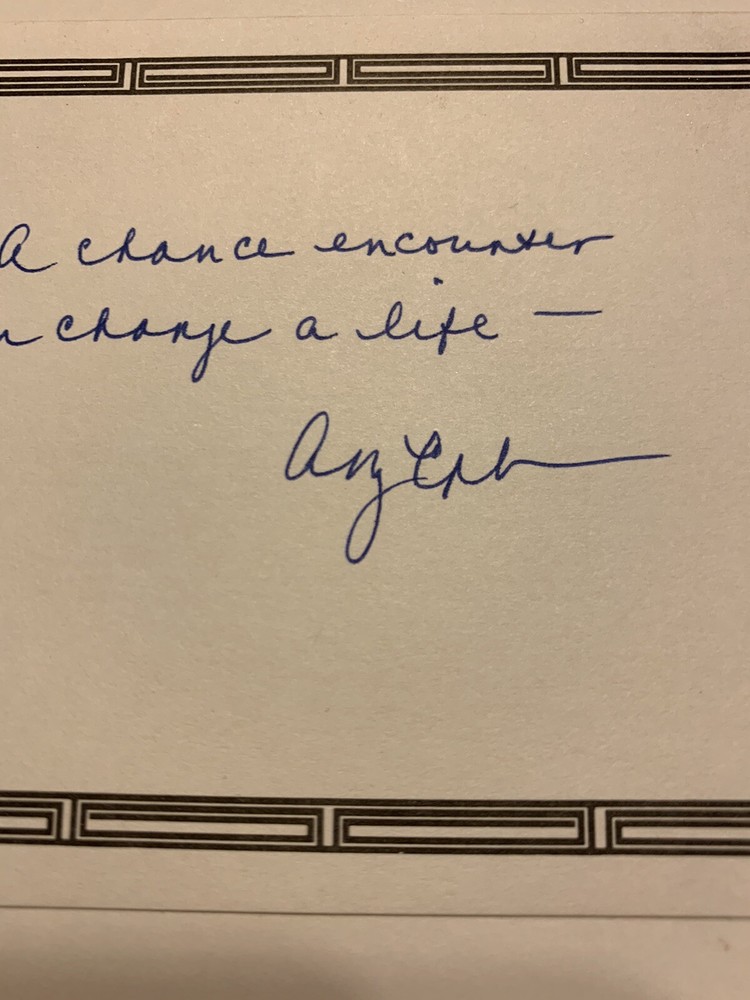 A chance encounter
n change a life —
Amy